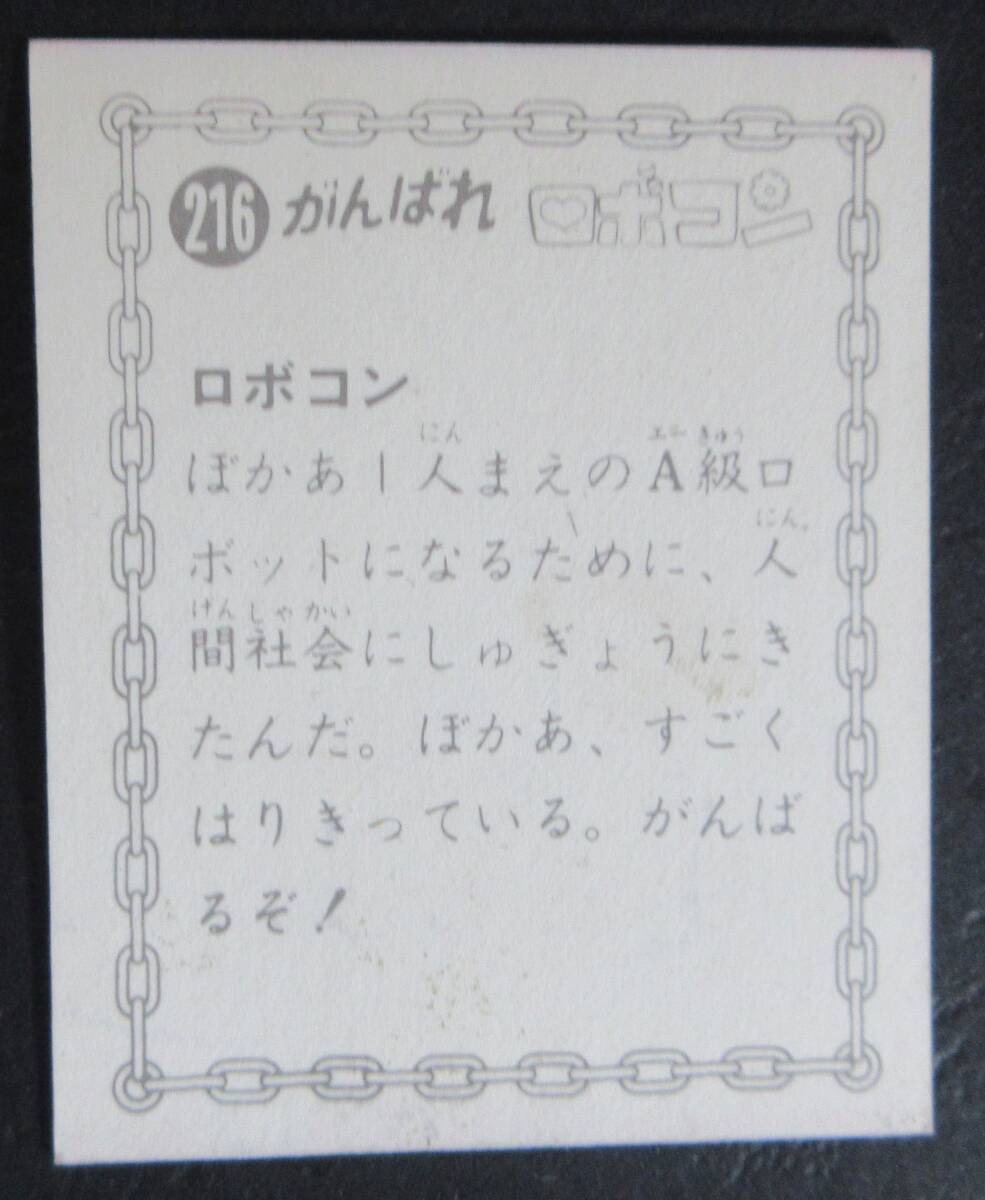 216 がんばれ ロボコン
ロボコン
ぼかあ１人まえのＡ級ロ
ボットになるために、人
間社会にしゅぎょうにき
たんだ。ぼかあ、すごく
はりきっている。がんば
るぞ！